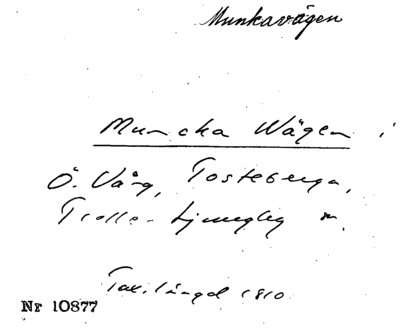 Munkavägen
Muncka Wägen i
Ö. Vång, Tosteberga,
Trolle-Ljungby m.
Tax.längd 1810
Nr 10877